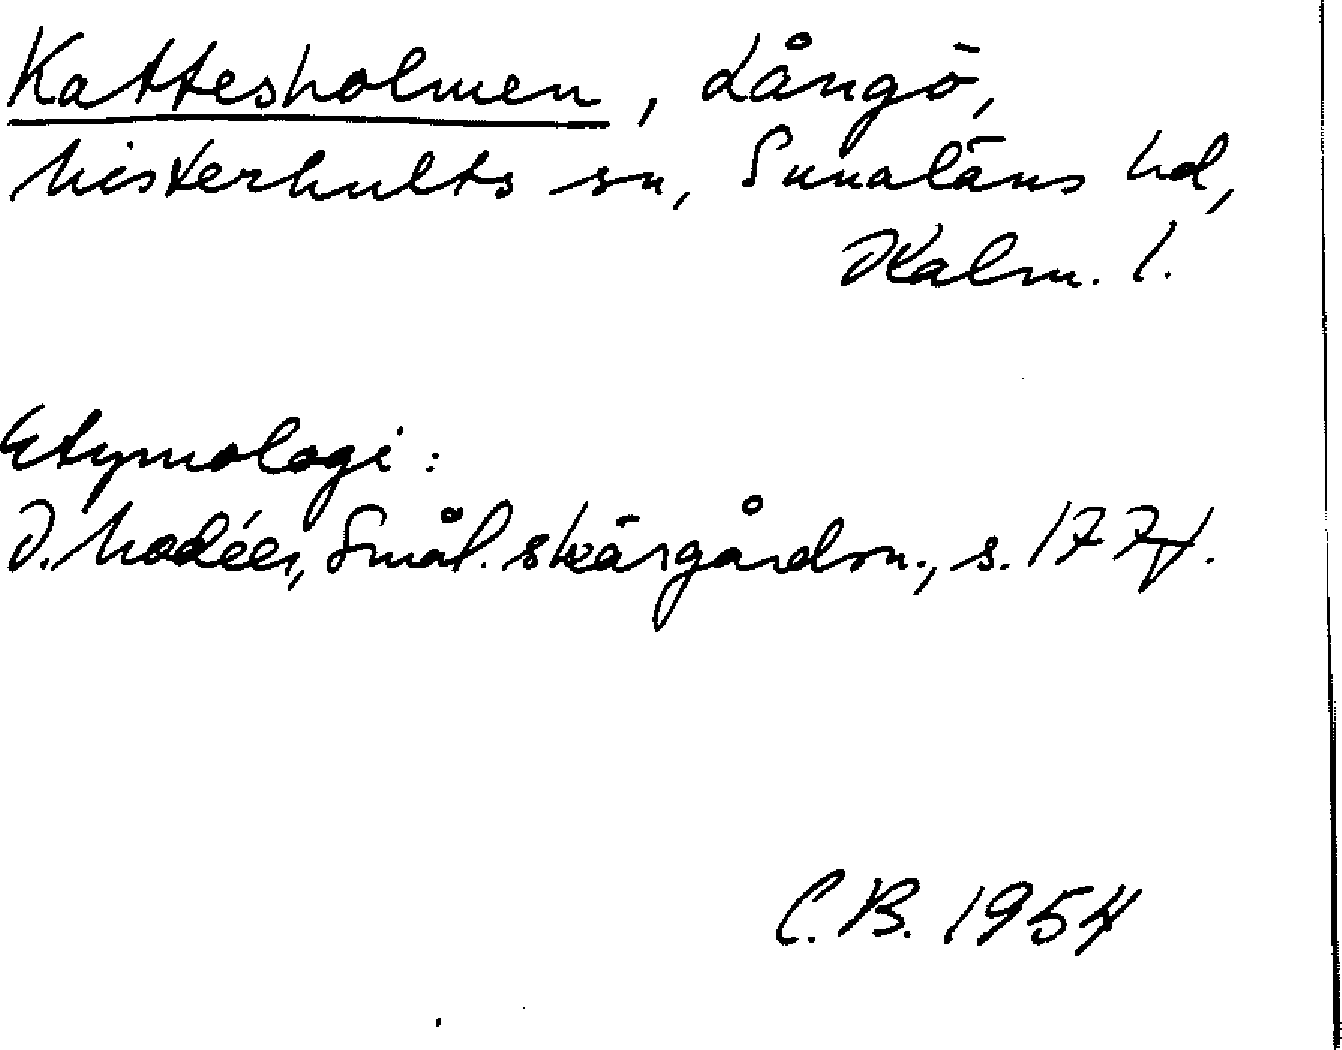 Kattesholmen, Långö,
Misterhults sn, Sunnaläns hd,
Kalm. l.
Etymologi:
I. Modéer, Smål. skärgårdsn., s. 177f.
C.B. 1954